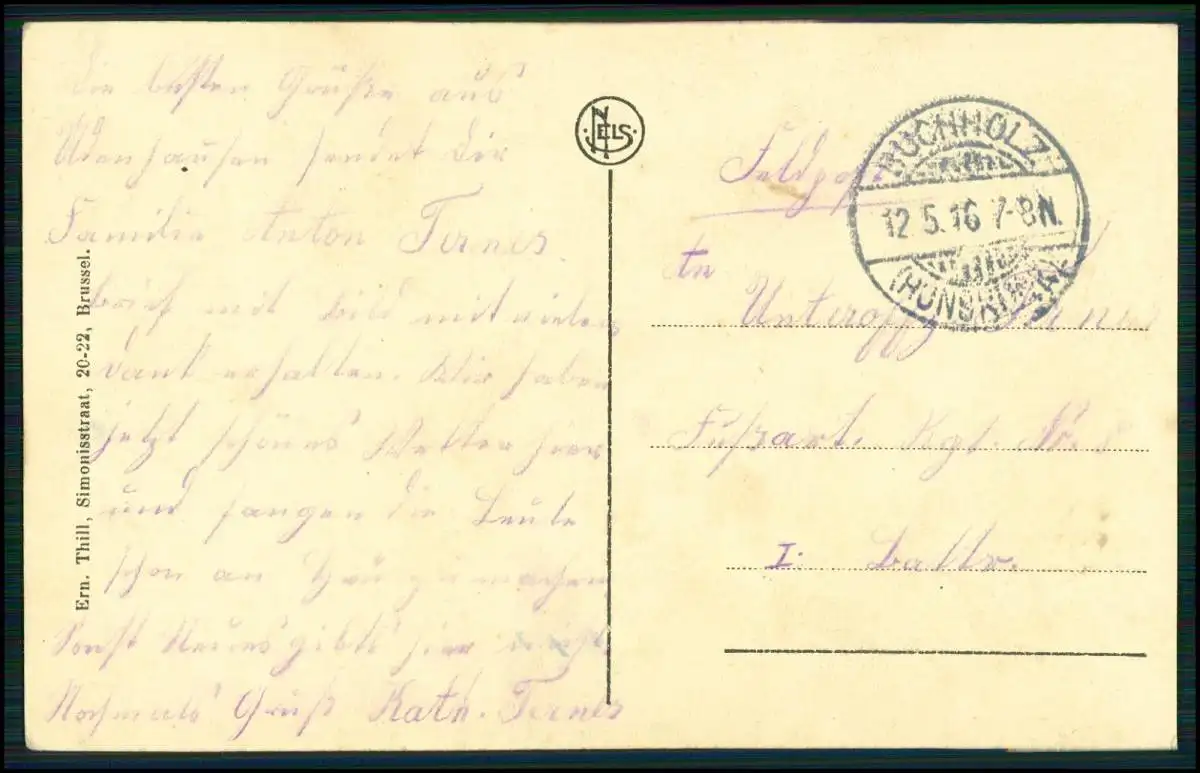 Die besten Grüße aus
Udenhausen sendet dir
Familie Anton Ternes
brief mit bild mit vielen
dank erhalten. Wir haben
jetzt schönes Wetter hier
und fangen die Leute
schon an Heu zu machen
Sonst Neues gibts hier nicht
Nochmals Gruß Kath. Ternes
Ern. Thill, Simonisstraat, 20-22, Brussel.
NELS
BUCHHOLZ
12.5.16 7-8N.
(HUNSRÜCK)
Feldpost
An
Unteroffz. Ternes
Fußart. Rgt. Nr. 8
I. Battr.